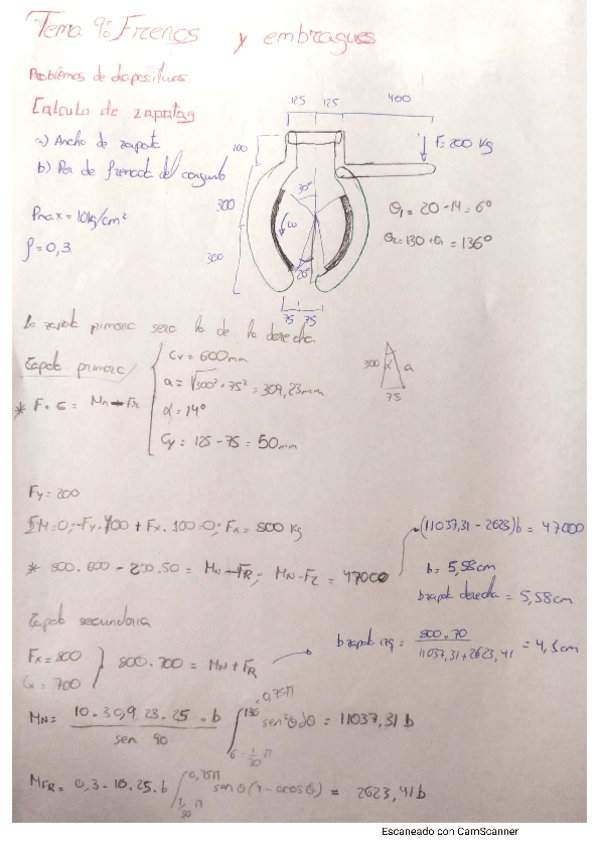 Tema 9: Frenos y embragues
Problemas de diapositivas
Calculo de zapatas
a) Ancho de zapata
b) Par de frenado del conjunto
Pmax = 10kg/cm²
f = 0,3
125 125 400
100
F = 200 Kg
300
30°
ω
300
20°
75 75
θ₁ = 20 - 14 = 6°
θ₂ = 130 + θ₁ = 136°
la zapata primaria sera la de la derecha.
Zapata primaria
Cv = 600mm
a = √300² + 75² = 309,23mm
α = 14°
Cy = 125 - 75 = 50mm
* F · c = Mn - Fr
300 α a
75
Fy = 200
ΣM=0; -Fy · 400 + Fx · 100 = 0; Fx = 800 Kg
* 800 · 600 - 200 · 50 = MN - FR; MN - FR = 47000
(11037,31 - 2623)b = 47000
b = 5,58cm
b zapata derecha = 5,58cm
Zapata secundaria
Fx = 800
Cx = 700
800 · 700 = MN + FR
b zapata izq = 800 · 70 / 11037,31 + 2623,41 = 4,1cm
MN = 10 · 30,923 · 25 · b / sen 90 ∫ sen²θ dθ = 11037,31 b
136 = 0,75π
6 = 1/30 π
MFR = 0,3 · 10 · 25 · b ∫ senθ (r - a cosθ) = 2623,41b
0,75π
1/30 π
Escaneado con CamScanner